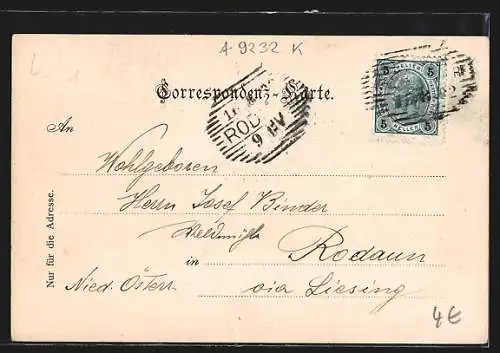 A 9232 K
Correspondenz-Karte.
5 5
HELLER
5 5
ROD
9 HV
An
Wohlgeboren
Herrn Josef Binder
Waldmühle
in Rodaun
Nied. Österr. via Liesing
Nur für die Adresse.
4€